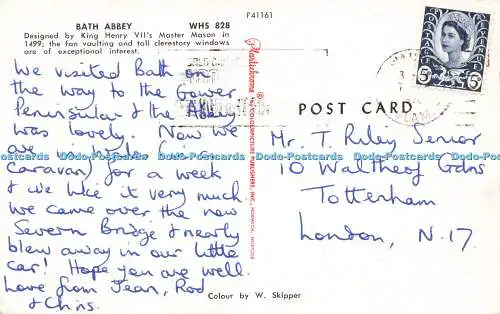 P41161
BATH ABBEY WHS 828
Designed by King Henry VII's Master Mason in
1499; the fan vaulting and tall clerestory windows
are of exceptional interest.
We visited Bath on
the way to the Gower
Peninsular & the Abbey
was lovely. Now we
are in Wales (in
caravan) for a week
& we like it very much.
We came over the new
Severn Bridge & nearly
blew away in our little
car! Hope you are well.
Love from Jean, Rod
& Chris.
POST CARD
Mr. T. Riley Senior
10 Waltheof Gdns
Tottenham
London, N.17.
Colour by W. Skipper
Dado-Postcards